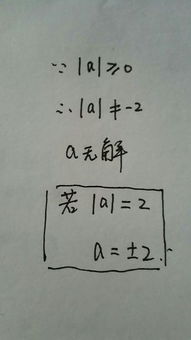 ∵ |a|≥0
∴ |a|≠-2
a无解
若 |a|=2
a=±2.